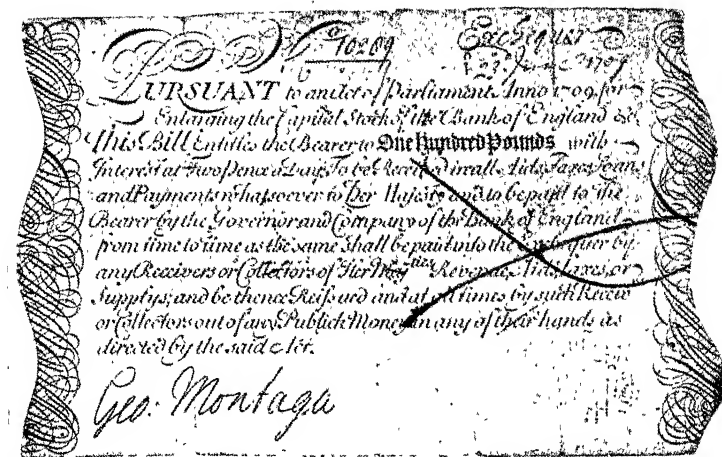 No 10209 Exchequer
23 June 1709
PURSUANT to an Act of Parliament Anno 1709 for
Enlarging the Capital Stock of the Bank of England &c
This Bill Entitles the Bearer to One Hundred Pounds with
Interest at Two Pence a Day To be Received in all Aids Taxes Loans
and Payments whatsoever to Her Majesty and to be paid to the
Bearer by the Governor and Company of the Bank of England
from time to time as the same shall be paid into the Exchequer by
any Receivers or Collectors of Her Majties Revenue Aids, Taxes, or
Supplys, and be thence Reissued and at all times by such Receivr
or Collectors out of any Publick Money in any of their hands as
directed by the said Act.
Geo: Montagu